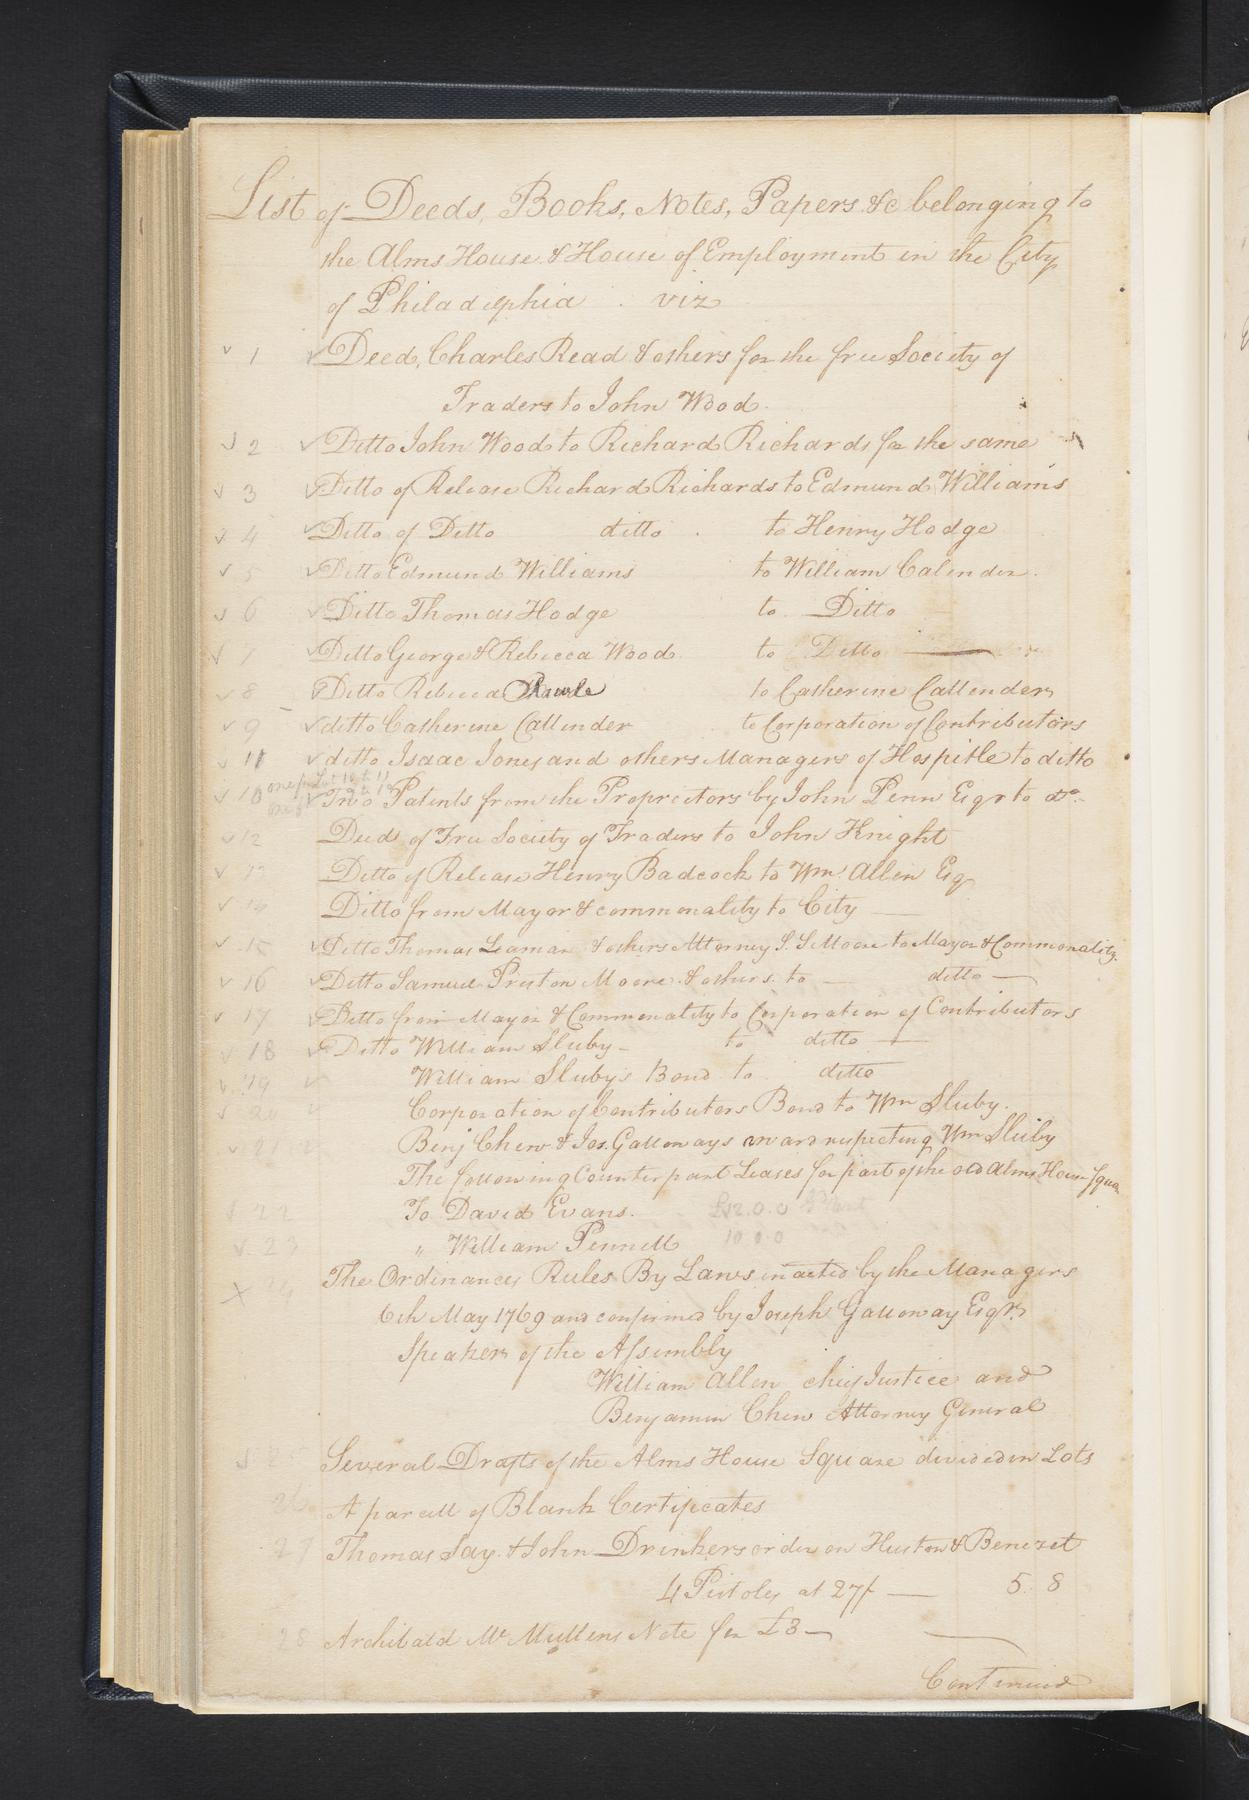 List of Deeds, Books, Notes, Papers &c belonging to
the Alms House & House of Employment in the City
of Philadelphia . viz
✓ 1 ✓ Deed, Charles Read & others for the free Society of
Traders to John Wood.
✓ 2 ✓ Ditto John Wood to Richard Richards for the same
✓ 3 ✓ Ditto of Release Richard Richards to Edmund Williams
✓ 4 ✓ Ditto of Ditto ditto . to Henry Hodge
✓ 5 ✓ Ditto Edmund Williams to William Calender.
✓ 6 ✓ Ditto Thomas Hodge to Ditto
✓ 7 ✓ Ditto George & Rebecca Wood to Ditto
✓ 8 ✓ Ditto Rebecca Rawle to Catherine Callender
✓ 9 ✓ ditto Catherine Callender to Corporation of Contributors
✓ 11 ✓ ditto Isaac Jones and others Managers of Hospitle to ditto
✓ 10 ✓ Two Patents from the Proprietors by John Penn Esqr to do.
✓ 12 Deed of Free Society of Traders to John Knight
✓ 13 Ditto of Release Henry Badcock to Wm. Allen Esq
✓ 14 Ditto from Mayor & commonality to City
✓ 15 ✓ Ditto Thomas Leaman & others Attorney S. Moore to Mayor & Commonality.
✓ 16 ✓ Ditto Samuel Preston Moore & others. to — ditto —
✓ 17 ✓ Ditto from Mayor & Commonality to Corporation of Contributors
✓ 18 ✓ Ditto William Sluby – to ditto —
✓ 19 ✓ William Sluby's Bond to ditto
✓ 20 ✓ Corporation of Contributors Bond to Wm Sluby.
✓ 21 Benj Chew & Jos. Galloways award respecting Wm Sluby
The following Counterpart Leases for part of the old Alms House Square
✓ 22 To David Evans. £12.0.0
✓ 23 " William Pennell 10.0.0
✗ 24 The Ordinances Rules By Laws inacted by the Managers
6th May 1769 and confirmed by Joseph Galloway Esqr.
Speaker of the Assembly
William Allen chief Justice and
Benjamin Chew Attorney General
✓ 25 Several Drafts of the Alms House Square divided in Lots
26 A parcell of Blank Certificates
27 Thomas Say & John Drinkers order on Huston & Benezet
4 Pistoles at 27/ — 5. 8
28 Archibald Mc Mullens Note for £3 —
Continued